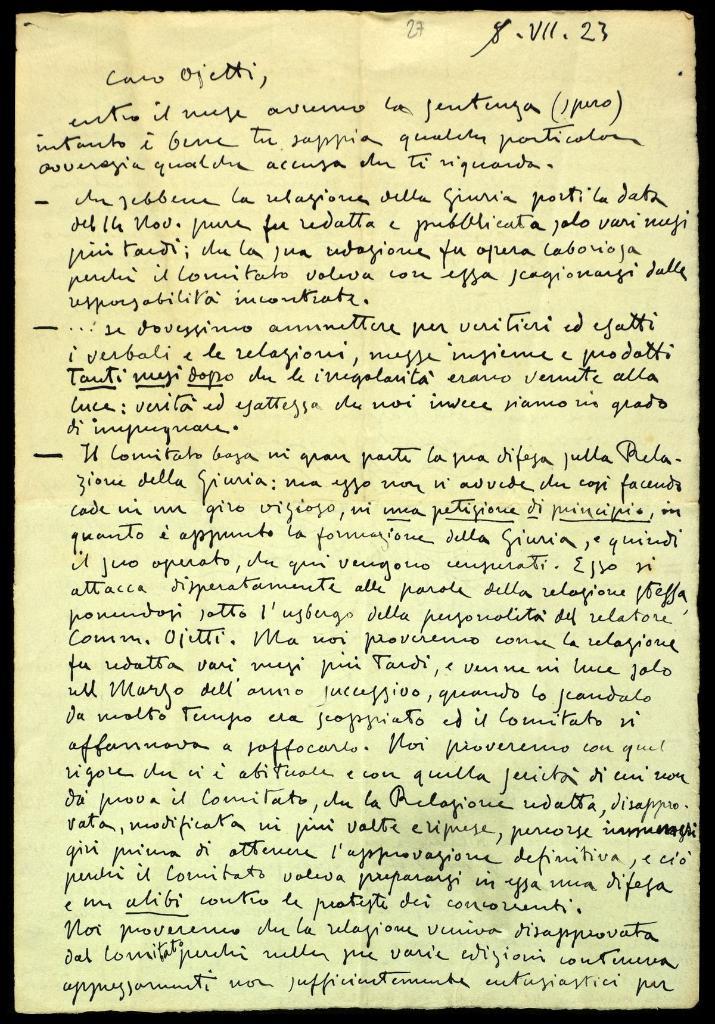 27
8 . VII . 23
Caro Ojetti,
entro il mese avremo la sentenza (spero)
intanto è bene tu sappia qualche particolare
ovverosia qualche accusa che ti riguarda.
— che sebbene la relazione della Giuria porti la data
del 14 Nov. pure fu redatta e pubblicata solo vari mesi
più tardi; che la sua redazione fu opera laboriosa
perchè il Comitato voleva con essa scagionarsi dalle
responsabilità incontrate.
— ... se dovessimo ammettere per veritieri ed esatti
i verbali e le relazioni, messe insieme e prodotti
tanti mesi dopo che le irregolarità erano venute alla
luce: verità ed esattezza che noi invece siamo in grado
di impugnare.
— Il Comitato basa in gran parte la sua difesa sulla Rela-
zione della Giuria: ma esso non si avvede che così facendo
cade in un giro vizioso, in una petizione di principio, in
quanto è appunto la formazione della Giuria, e quindi
il suo operato, che qui vengono censurati. Esso si
attacca disperatamente alle parole della relazione stessa,
ponendosi sotto l'usbergo della personalità del relatore
Comm. Ojetti. Ma noi proveremo come la relazione
fu redatta vari mesi più tardi, e venne in luce solo
nel Marzo dell'anno successivo, quando lo scandalo
da molto tempo era scoppiato ed il Comitato si
affannava a soffocarlo. Noi proveremo con quel
rigore che ci è abituale e con quella serietà di cui non
dà prova il Comitato, che la Relazione redatta, disappro-
vata, modificata in più volte e riprese, percorse innumeri
giri prima di ottenere l'approvazione definitiva, e ciò
perchè il Comitato voleva prepararsi in essa una difesa
e un alibi contro le proteste dei concorrenti.
Noi proveremo che la relazione veniva disapprovata
dal Comitato perchè nelle sue varie edizioni conteneva
apprezzamenti non sufficientemente entusiastici per